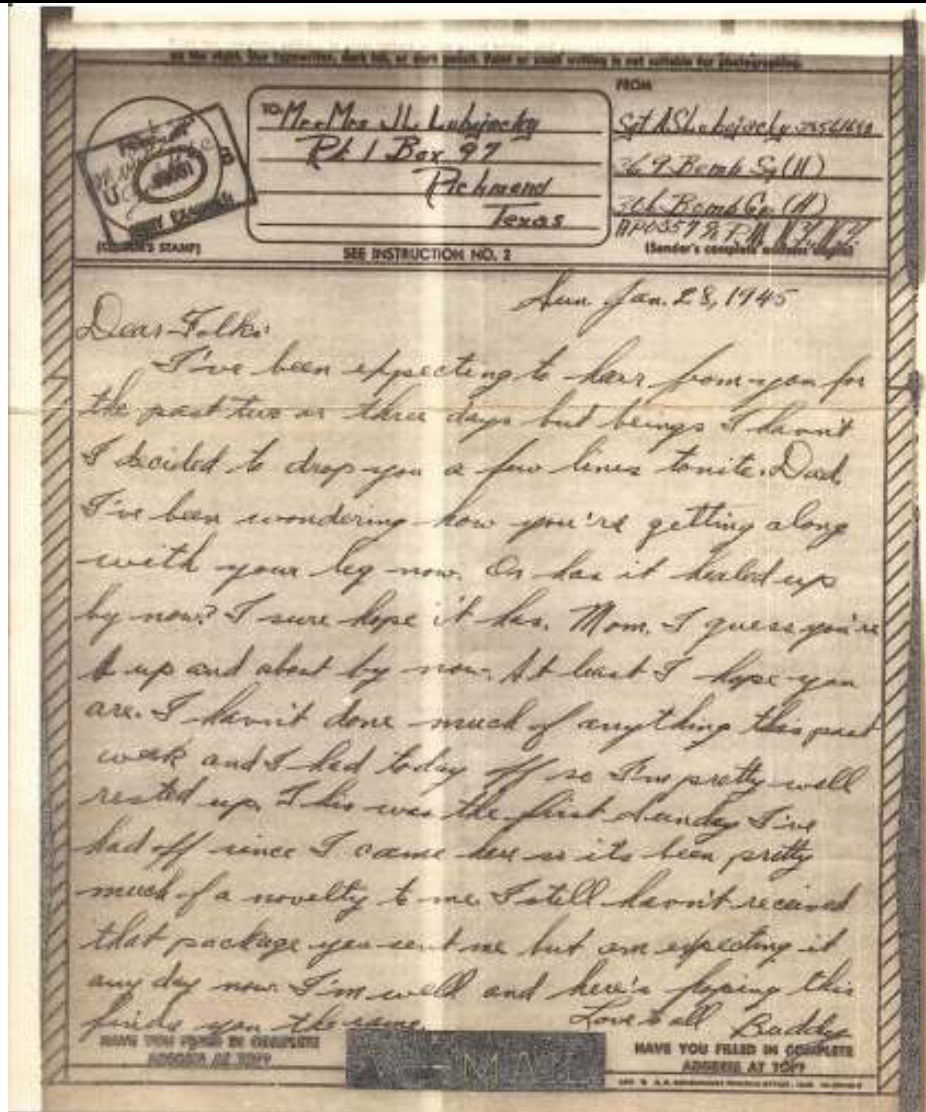 on the right. Use typewriter, dark ink, or dark pencil. Faint or small writing is not suitable for photographing.
TO: Mr. Mrs J L Lubojacky
Rt 1 Box 97
Richmond
Texas
FROM
Sgt A S Lubojacky
369 Bomb Sq (H)
306 Bomb Gp (H)
APO 557 % P.M. N.Y. N.Y.
(CENSOR'S STAMP)
SEE INSTRUCTION NO. 2
(Sender's complete address above)
Sun. Jan. 28, 1945
Dear Folks:
I've been expecting to hear from you for
the past two or three days but beings I havn't
I decided to drop you a few lines tonite. Dad
I've been wondering how you're getting along
with your leg now. Or has it healed up
by now? I sure hope it has. Mom. I guess you're
up and about by now. At least I hope you
are. I havn't done much of anything this past
week and I had today off so I'm pretty well
rested up. This was the first Sunday I've
had off since I came here so its been pretty
much of a novelty to me. I still havn't received
that package you sent me but am expecting it
any day now. I'm well and here's hoping this
finds you the same.
Love to all Buddy
HAVE YOU FILLED IN COMPLETE
ADDRESS AT TOP?
V-MAIL
HAVE YOU FILLED IN COMPLETE
ADDRESS AT TOP?